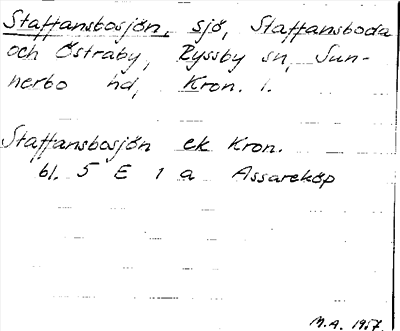 Staffansbosjön, sjö, Staffansboda
och Östraby, Ryssby sn, Sun-
nerbo hd, Kron. l.
Staffansbosjön ek Kron.
bl. 5 E 1 a Assareköp
M.A. 1957.